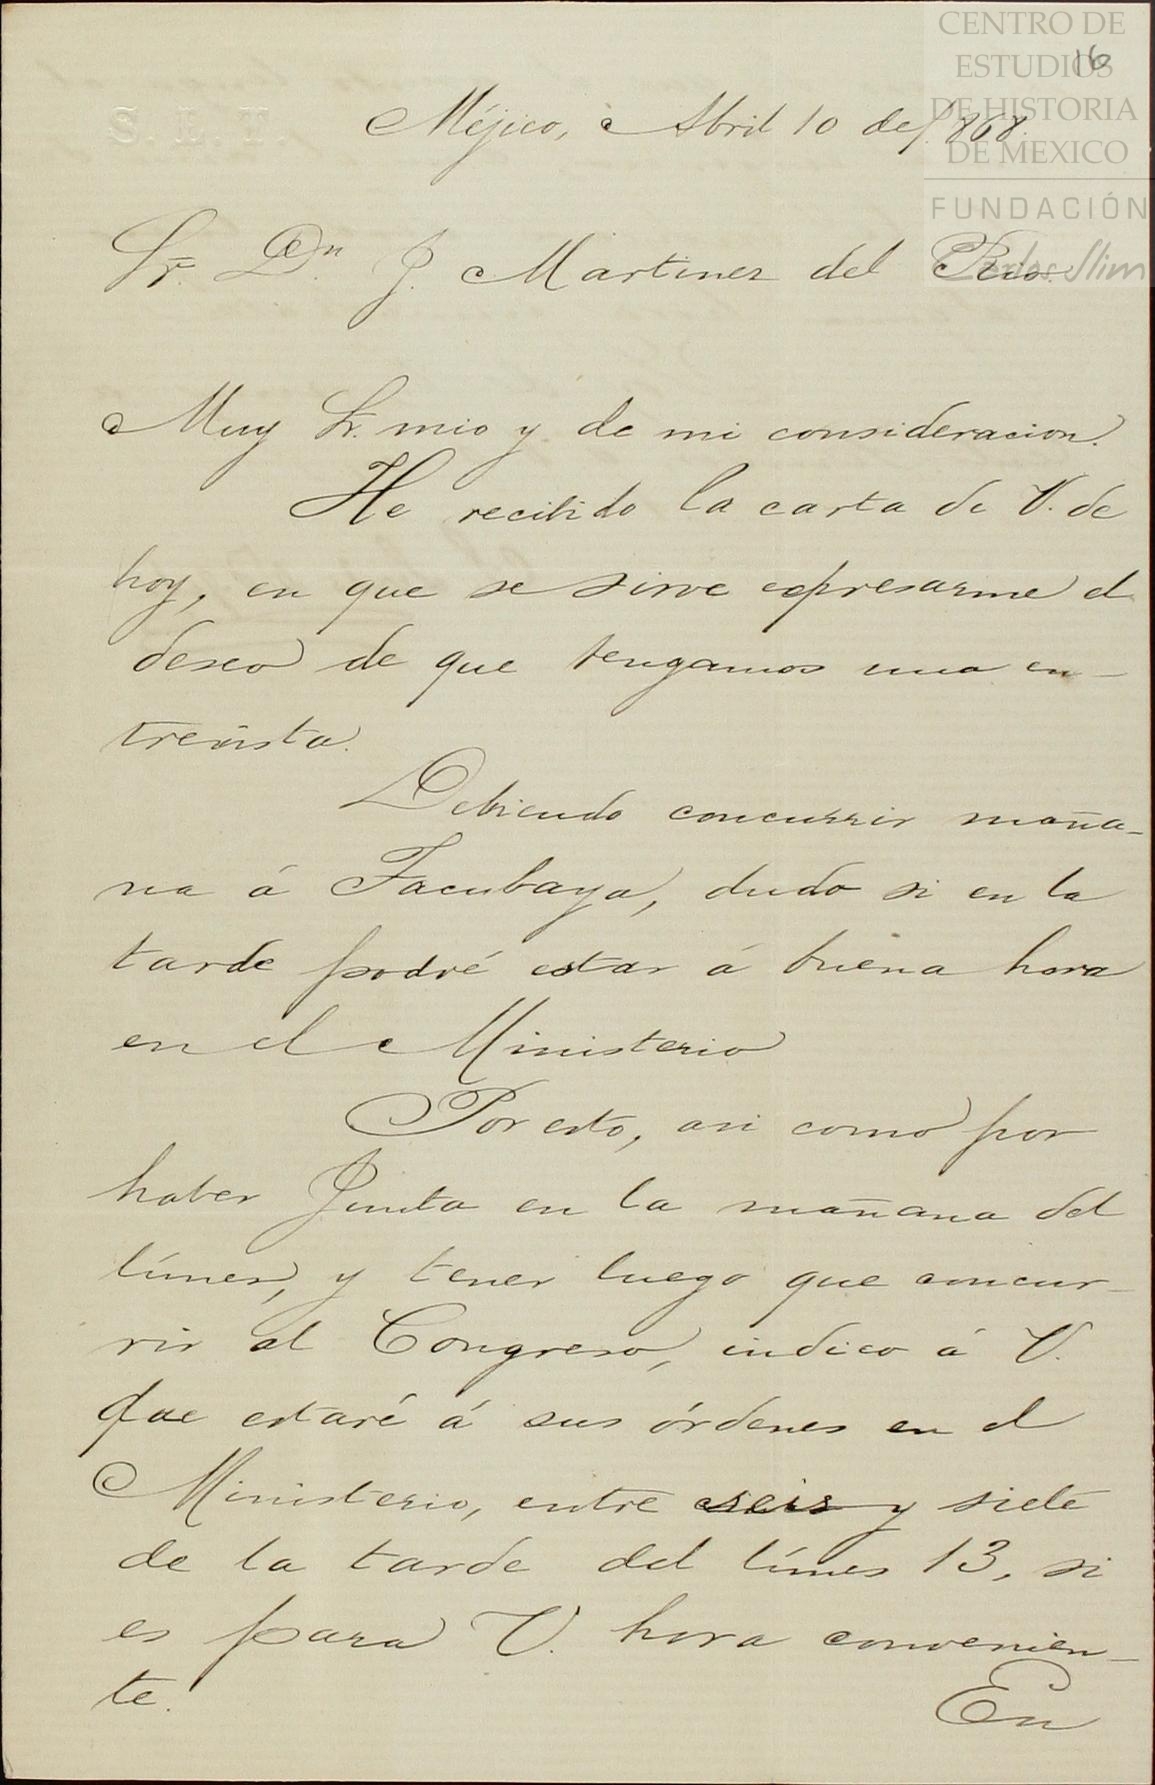 CENTRO DE
ESTUDIOS
DE HISTORIA
DE MEXICO
FUNDACIÓN
Carlos Slim
16
S. L. T.
Méjico, Abril 10 de/.868.
Sr. Dn. J. Martinez del Rio.
Muy Sr. mio y de mi consideracion.
He recibido la carta de V. de
hoy, en que se sirve espresarme el
deseo de que tengamos una en-
trevista.
Debiendo concurrir maña-
na á Tacubaya, dudo si en la
tarde podré estar á buena hora
en el Ministerio
Por esto, asi como por
haber Junta en la mañana del
lúnes, y tener luego que concur-
rir al Congreso, indico á V.
que estaré á sus órdenes en el
Ministerio, entre seis y siete
de la tarde del lúnes 13, si
es para V. hora convenien-
te.
En